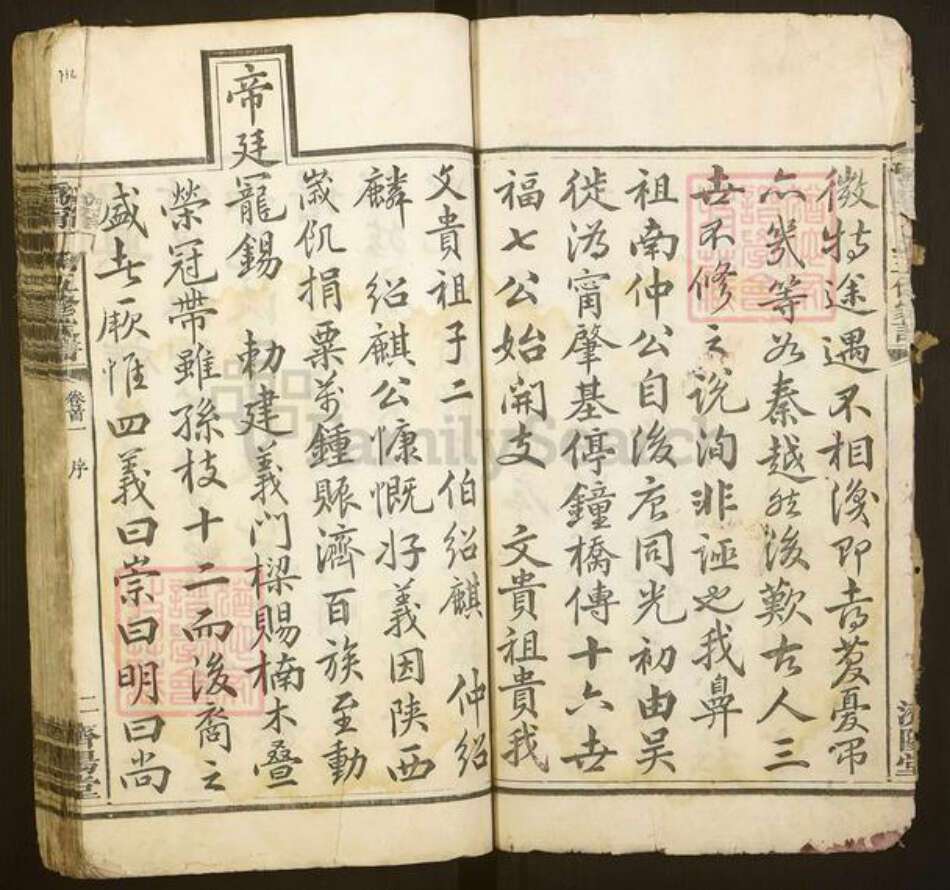 微特途遇不相渙即喜慶憂弔
亦幾等如秦越然後歎古人三
世不修之說洵非誣也我鼻
祖南仲公自後唐同光初由吳
徙溈甯肇基停鐘橋傳十六世
福七公始開支 文貴祖貴我
文貴祖子二 伯紹麒 仲紹
麟 紹麒公慷慨好義因陝西
歲饑捐粟萬鍾賑濟百族至動
帝廷寵錫 勅建義門樑賜楠木疊
榮冠帶雖孫枝十二而後裔之
盛者厥惟四義曰崇曰明曰尚
卷首一
序
二
濟陽堂
濟陽堂
FamilySearch